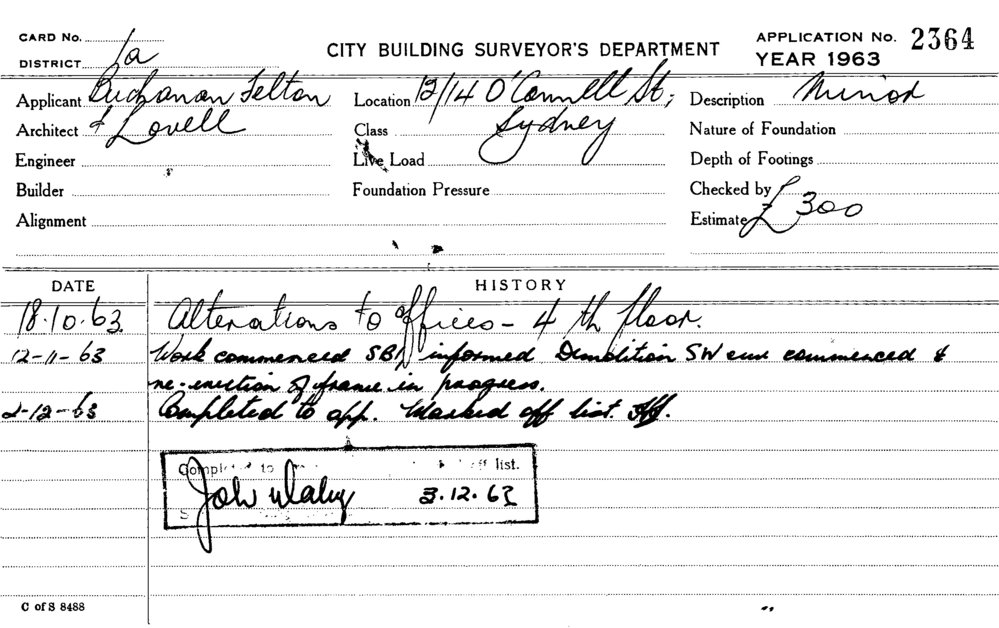 CARD No.
DISTRICT 1a
CITY BUILDING SURVEYOR'S DEPARTMENT
APPLICATION No. 2364
YEAR 1963
Applicant Buchanan Felton
Architect & Lovell
Engineer
Builder
Alignment
Location 12/14 O'Connell St,
Class Sydney
Live Load
Foundation Pressure
Description Minor
Nature of Foundation
Depth of Footings
Checked by
Estimate £300
DATE HISTORY
18.10.63 Alterations to offices - 4th floor.
12-11-63 Work commenced informed Demolition commenced &
re-erection of frame in progress.
2-12-63 Completed to app. Marked off list.
Completed to off list.
3.12.63
C of S 8488